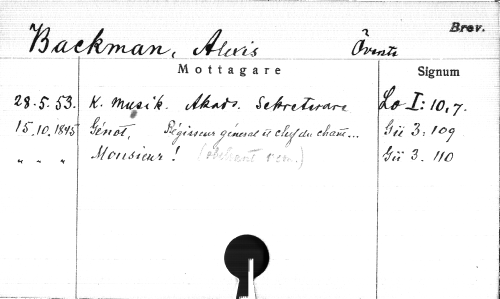 Brev.
Backman, Alexis Övents
Mottagare Signum
28.5.53. K. Musik. Akad. Sekreterare Lo I: 10,7.
15.10.1845 Génot, Régisseur général et chef du chant... Gü 3: 109
" " " Monsieur! Gü 3. 110